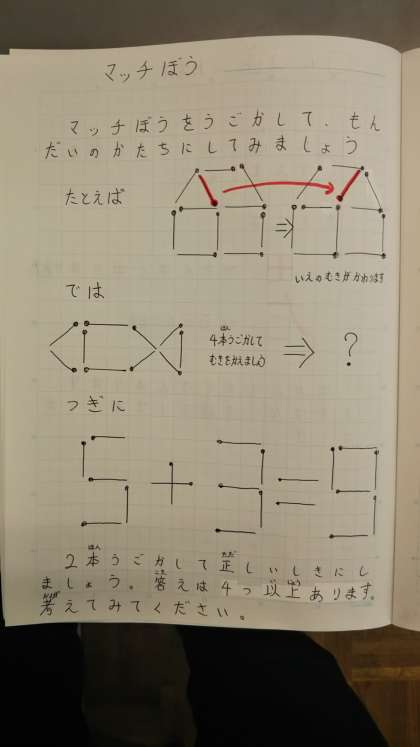 マッチぼう
マッチぼうをうごかして、もん
だいのかたちにしてみましょう
たとえば
⇒
いえのむきがかわります
では
4本うごかして
むきをかえましょう
⇒ ?
つぎに
5+3=9
2本うごかして正しいしきにし
ましょう。答えは4つ以上あります。
考えてみてください。